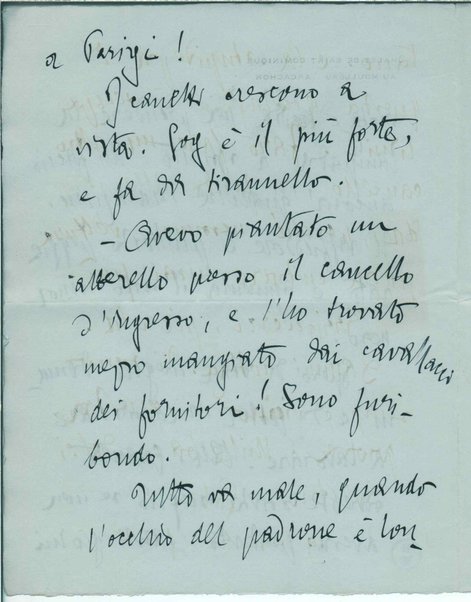 a Parigi!
I canetti crescono a
vista. Gog è il più forte,
e fa da tirannello.
– Avevo piantato un
alberello presso il cancello
d'ingresso, e l'ho trovato
mezzo mangiato dai cavallacci
dei fornitori! Sono furi-
bondo.
Tutto va male, quando
l'occhio del padrone è lon-